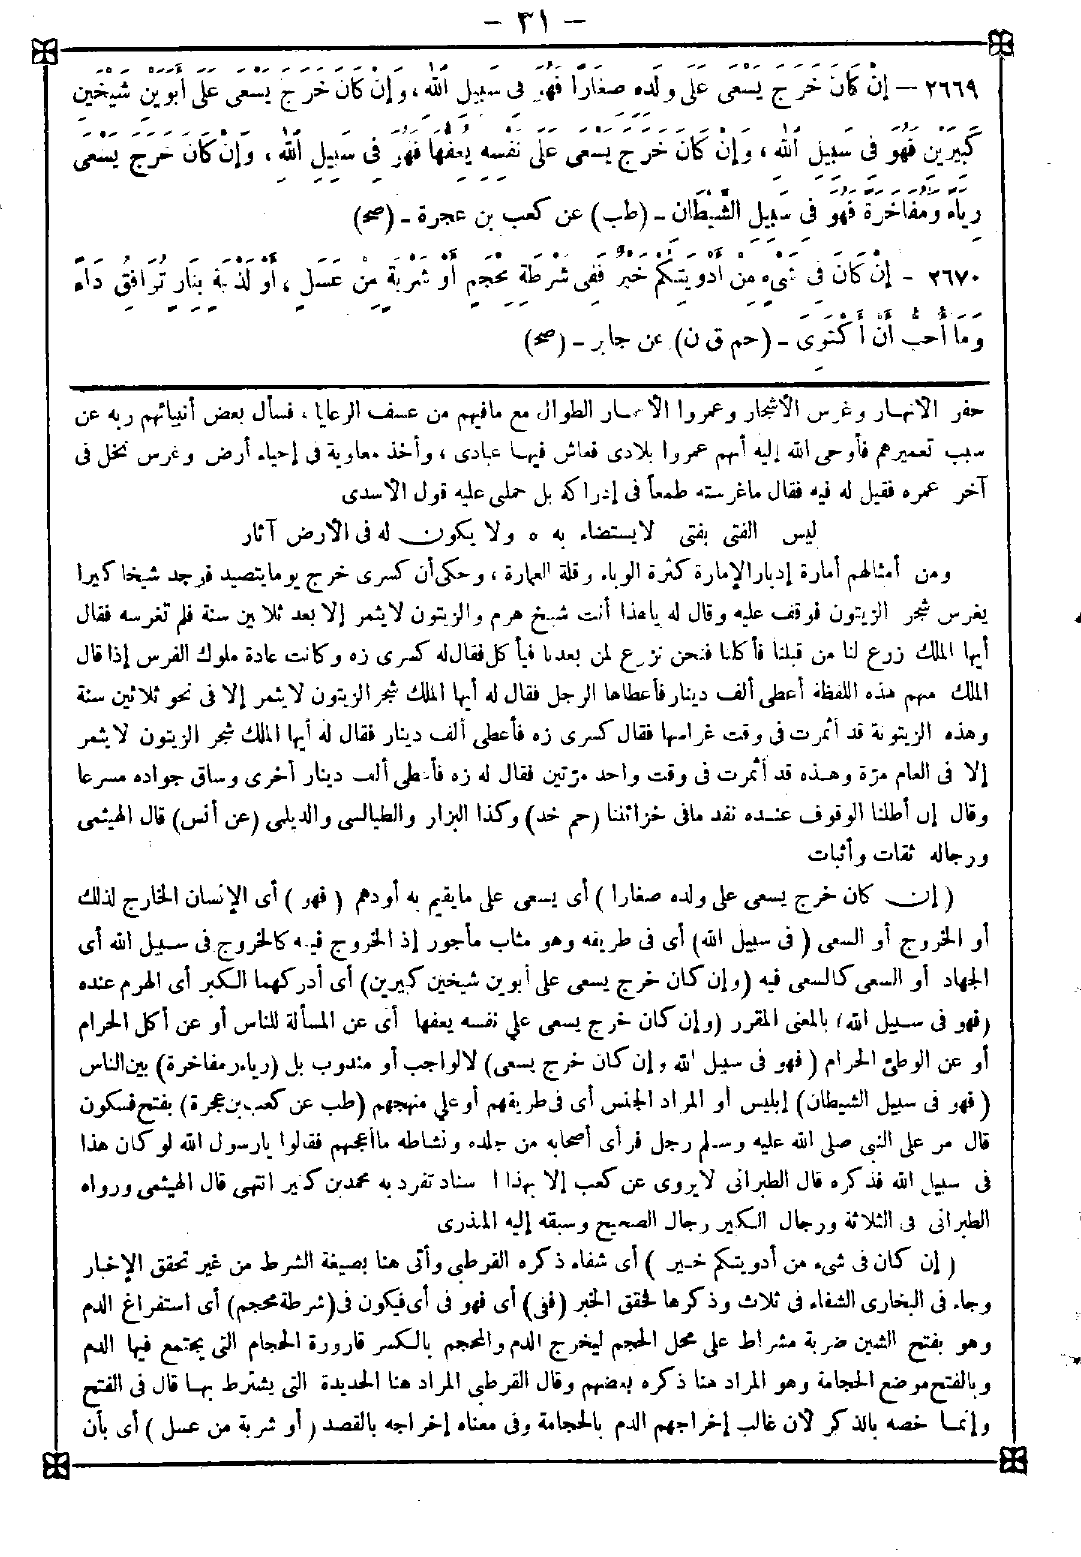 - ٣١ -
٢٦٦٩ - إِنْ كَانَ خَرَجَ يَسْعَى عَلَى وَلَدِهِ صِغَارًا فَهُوَ فِي سَبِيلِ اللهِ ، وَإِنْ كَانَ خَرَجَ يَسْعَى عَلَى أَبَوَيْنِ شَيْخَيْنِ
كَبِيرَيْنِ فَهُوَ فِي سَبِيلِ اللهِ ، وَإِنْ كَانَ خَرَجَ يَسْعَى عَلَى نَفْسِهِ يُعِفُّهَا فَهُوَ فِي سَبِيلِ اللهِ ، وَإِنْ كَانَ خَرَجَ يَسْعَى
رِيَاءً وَمُفَاخَرَةً فَهُوَ فِي سَبِيلِ الشَّيْطَانِ - (طب) عن كعب بن عجرة - (صح)
٢٦٧٠ - إِنْ كَانَ فِي شَيْءٍ مِنْ أَدْوِيَتِكُمْ خَيْرٌ فَفِي شَرْطَةِ مِحْجَمٍ أَوْ شَرْبَةٍ مِنْ عَسَلٍ ، أَوْ لَذْعَةٍ بِنَارٍ تُوَافِقُ دَاءً
وَمَا أُحِبُّ أَنْ أَكْتَوِىَ - (حم ق ن) عن جابر - (صح)
حفر الأنهار وغرس الأشجار وعمروا الأعمار الطوال مع مافيهم من عسف الرعايا ، فسأل بعض أنبيائهم ربه عن
سبب تعميرهم فأوحى الله إليه أنهم عمروا بلادى فعاش فيها عبادى ، وأخذ معاوية فى إحياء أرض وغرس نخل فى
آخر عمره فقيل له فيه فقال ماغرسته طمعاً فى إدراكه بل حملنى عليه قول الأسدى
ليس الفتى بفتى لايستضاء به ه ولا يكون له فى الأرض آثار
ومن أمثالهم أمارة إدبار الإمارة كثرة الوباء وقلة العمارة ، وحكى أن كسرى خرج يوما يتصيد فوجد شيخا كبيرا
يغرس شجر الزيتون فوقف عليه وقال له ياهذا أنت شيخ هرم والزيتون لايثمر إلا بعد ثلاثين سنة فلم تغرسه فقال
أيها الملك زرع لنا من قبلنا فأكلنا فنحن نزرع لمن بعدنا فيأكل فقال له كسرى زه وكانت عادة ملوك الفرس إذا قال
الملك منهم هذه اللفظة أعطى ألف دينار فأعطاها الرجل فقال له أيها الملك شجر الزيتون لايثمر إلا فى نحو ثلاثين سنة
وهذه الزيتونة قد أثمرت فى وقت غراسها فقال كسرى زه فأعطى ألف دينار فقال له أيها الملك شجر الزيتون لايثمر
إلا فى العام مرّة وهذه قد أثمرت فى وقت واحد مرّتين فقال له زه فأعطى ألف دينار أخرى وساق جواده مسرعا
وقال إن أطلنا الوقوف عنده نفد مافى خزائننا (حم خد) وكذا البزار والطيالسى والديلى (عن أنس) قال الهيثمى
ورجاله ثقات وأثبات
(إن كان خرج يسعى على ولده صغارا) أى يسعى على مايقيم به أودهم (فهو) أى الإنسان الخارج لذلك
أو الخروج أو السعى (فى سبيل الله) أى فى طريقه وهو مثاب مأجور إذ الخروج فيه كالخروج فى سبيل الله أى
الجهاد أو السعى كالسعى فيه (وإن كان خرج يسعى على أبوين شيخين كبيرين) أى أدركهما الكبر أى الهرم عنده
(فهو فى سبيل الله) بالمعنى المقرر (وإن كان خرج يسعى على نفسه يعفها) أى عن المسألة للناس أو عن أكل الحرام
أو عن الوطئ الحرام (فهو فى سبيل الله وإن كان خرج يسعى) لالواجب أو مندوب بل (رياء ومفاخرة) بين الناس
(فهو فى سبيل الشيطان) إبليس أو المراد الجنس أى فى طريقهم أو على منهجهم (طب عن كعب بن عجرة) بفتح فسكون
قال مر على النبى صلى الله عليه وسلم رجل فرأى أصحابه من جلده ونشاطه ماأعجبهم فقالوا يارسول الله لو كان هذا
فى سبيل الله فذكره قال الطبرانى لايروى عن كعب إلا بهذا الإسناد تفرد به محمد بن كثير انتهى قال الهيثمى ورواه
الطبرانى فى الثلاثة ورجال الكبير رجال الصحيح وسبقه إليه المنذرى
(إن كان فى شىء من أدويتكم خير) أى شفاء ذكره القرطبى وأتى هنا بصيغة الشرط من غير تحقق الإخبار
وجاء فى البخارى الشفاء فى ثلاث وذكرها لحقق الخبر (ففى) أى فهو فى أى فيكون فى (شرطة محجم) أى استفراغ الدم
وهو بفتح الشين ضربة مشراط على محل الحجم ليخرج الدم والمحجم بالكسر قارورة الحجام التى يجتمع فيها الدم
وبالفتح موضع الحجامة وهو المراد هنا ذكره بعضهم وقال القرطبى المراد هنا الحديدة التى يشترط بها قال فى الفتح
وإنما خصه بالذكر لأن غالب إخراجهم الدم بالحجامة وفى معناه إخراجه بالفصد (أو شربة من عسل) أى بأن